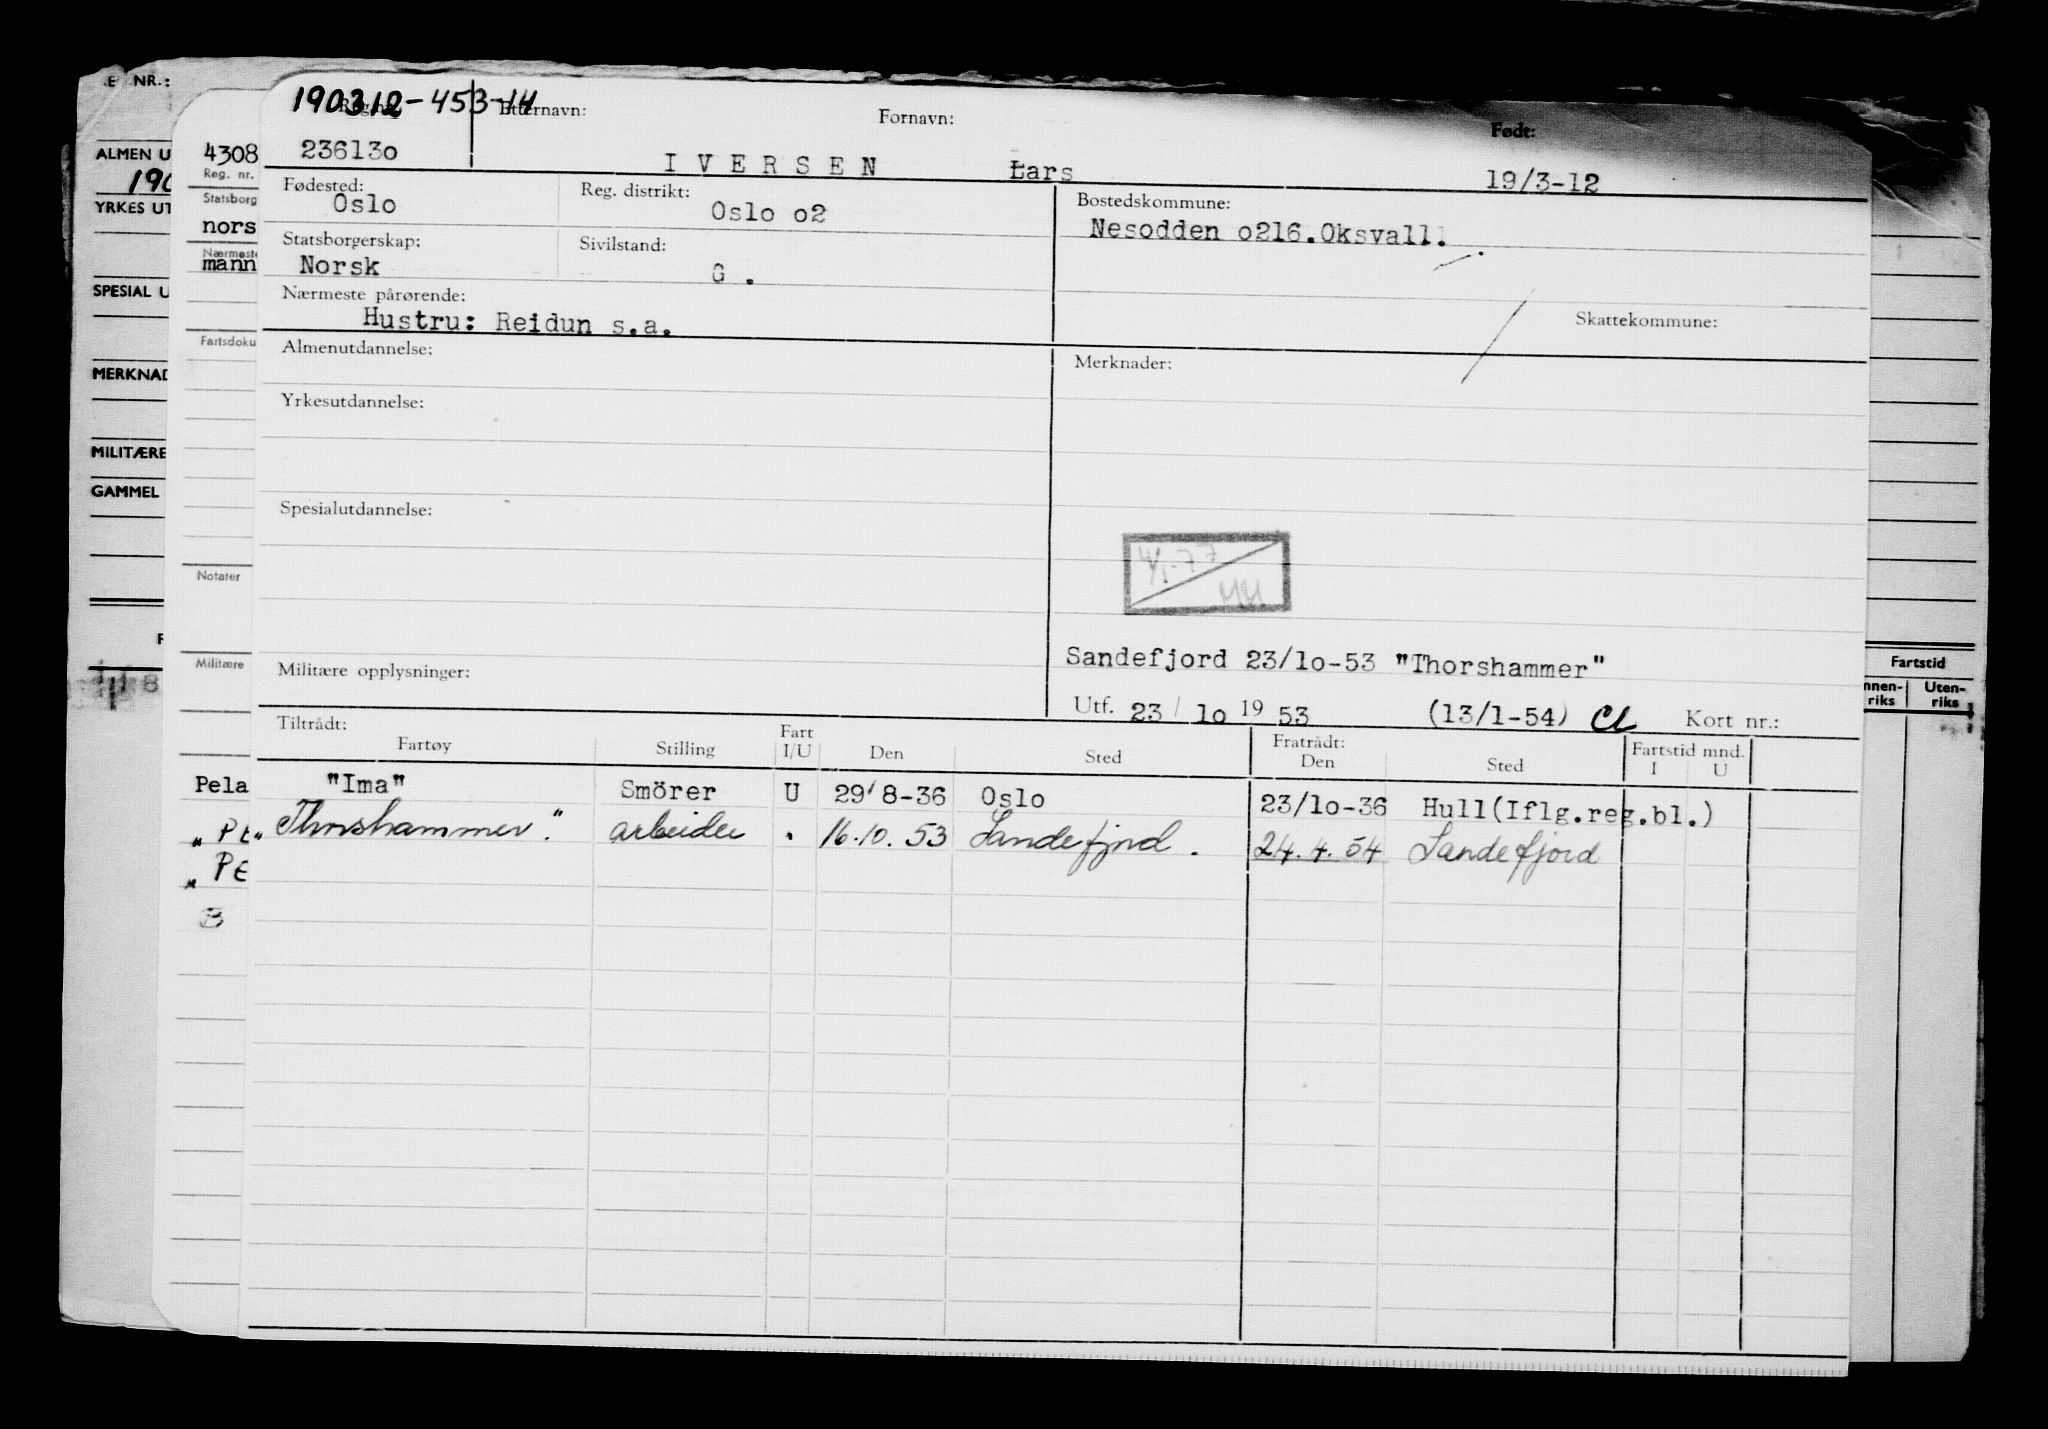 E NR.:
190312-453-14
Reg. nr.
Etternavn:
Fornavn:
Født:
ALMEN U
4308
236130
I V E R S E N
Lars
19/3-12
190
Reg. nr.
Fødested:
Reg. distrikt:
Bostedskommune:
YRKES UT
Statsborg
Oslo
Oslo o2
Nesodden o216.Oksvall.
nors
Statsborgerskap:
Sivilstand:
Nærmeste
mann
Norsk
G .
SPESIAL U
Nærmeste pårørende:
Hustru: Reidun s.a.
Skattekommune:
Fartsdoku
Almenutdannelse:
Merknader:
MERKNAD
Yrkesutdannelse:
MILITÆRE
GAMMEL
Spesialutdannelse:
4/1-77
Notater
Militære
Militære opplysninger:
Sandefjord 23/1o-53 "Thorshammer"
Fartstid
Utf. 23/ 1o 19 53 (13/1-54) Kort nr.:
nnen-
riks
Uten-
riks
Tiltrådt:
Fartøy
Stilling
Fart
I/U
Den
Sted
Fratrådt:
Den
Sted
Fartstid mnd.
I U
Pela
"Ima" Smörer U 29/8-36 Oslo 23/1o-36 Hull(Iflg.reg.bl.)
" PE
"Thorshammer". arbeider " 16.10.53 Sandefjord. 24.4.54 Sandefjord
" PE
B